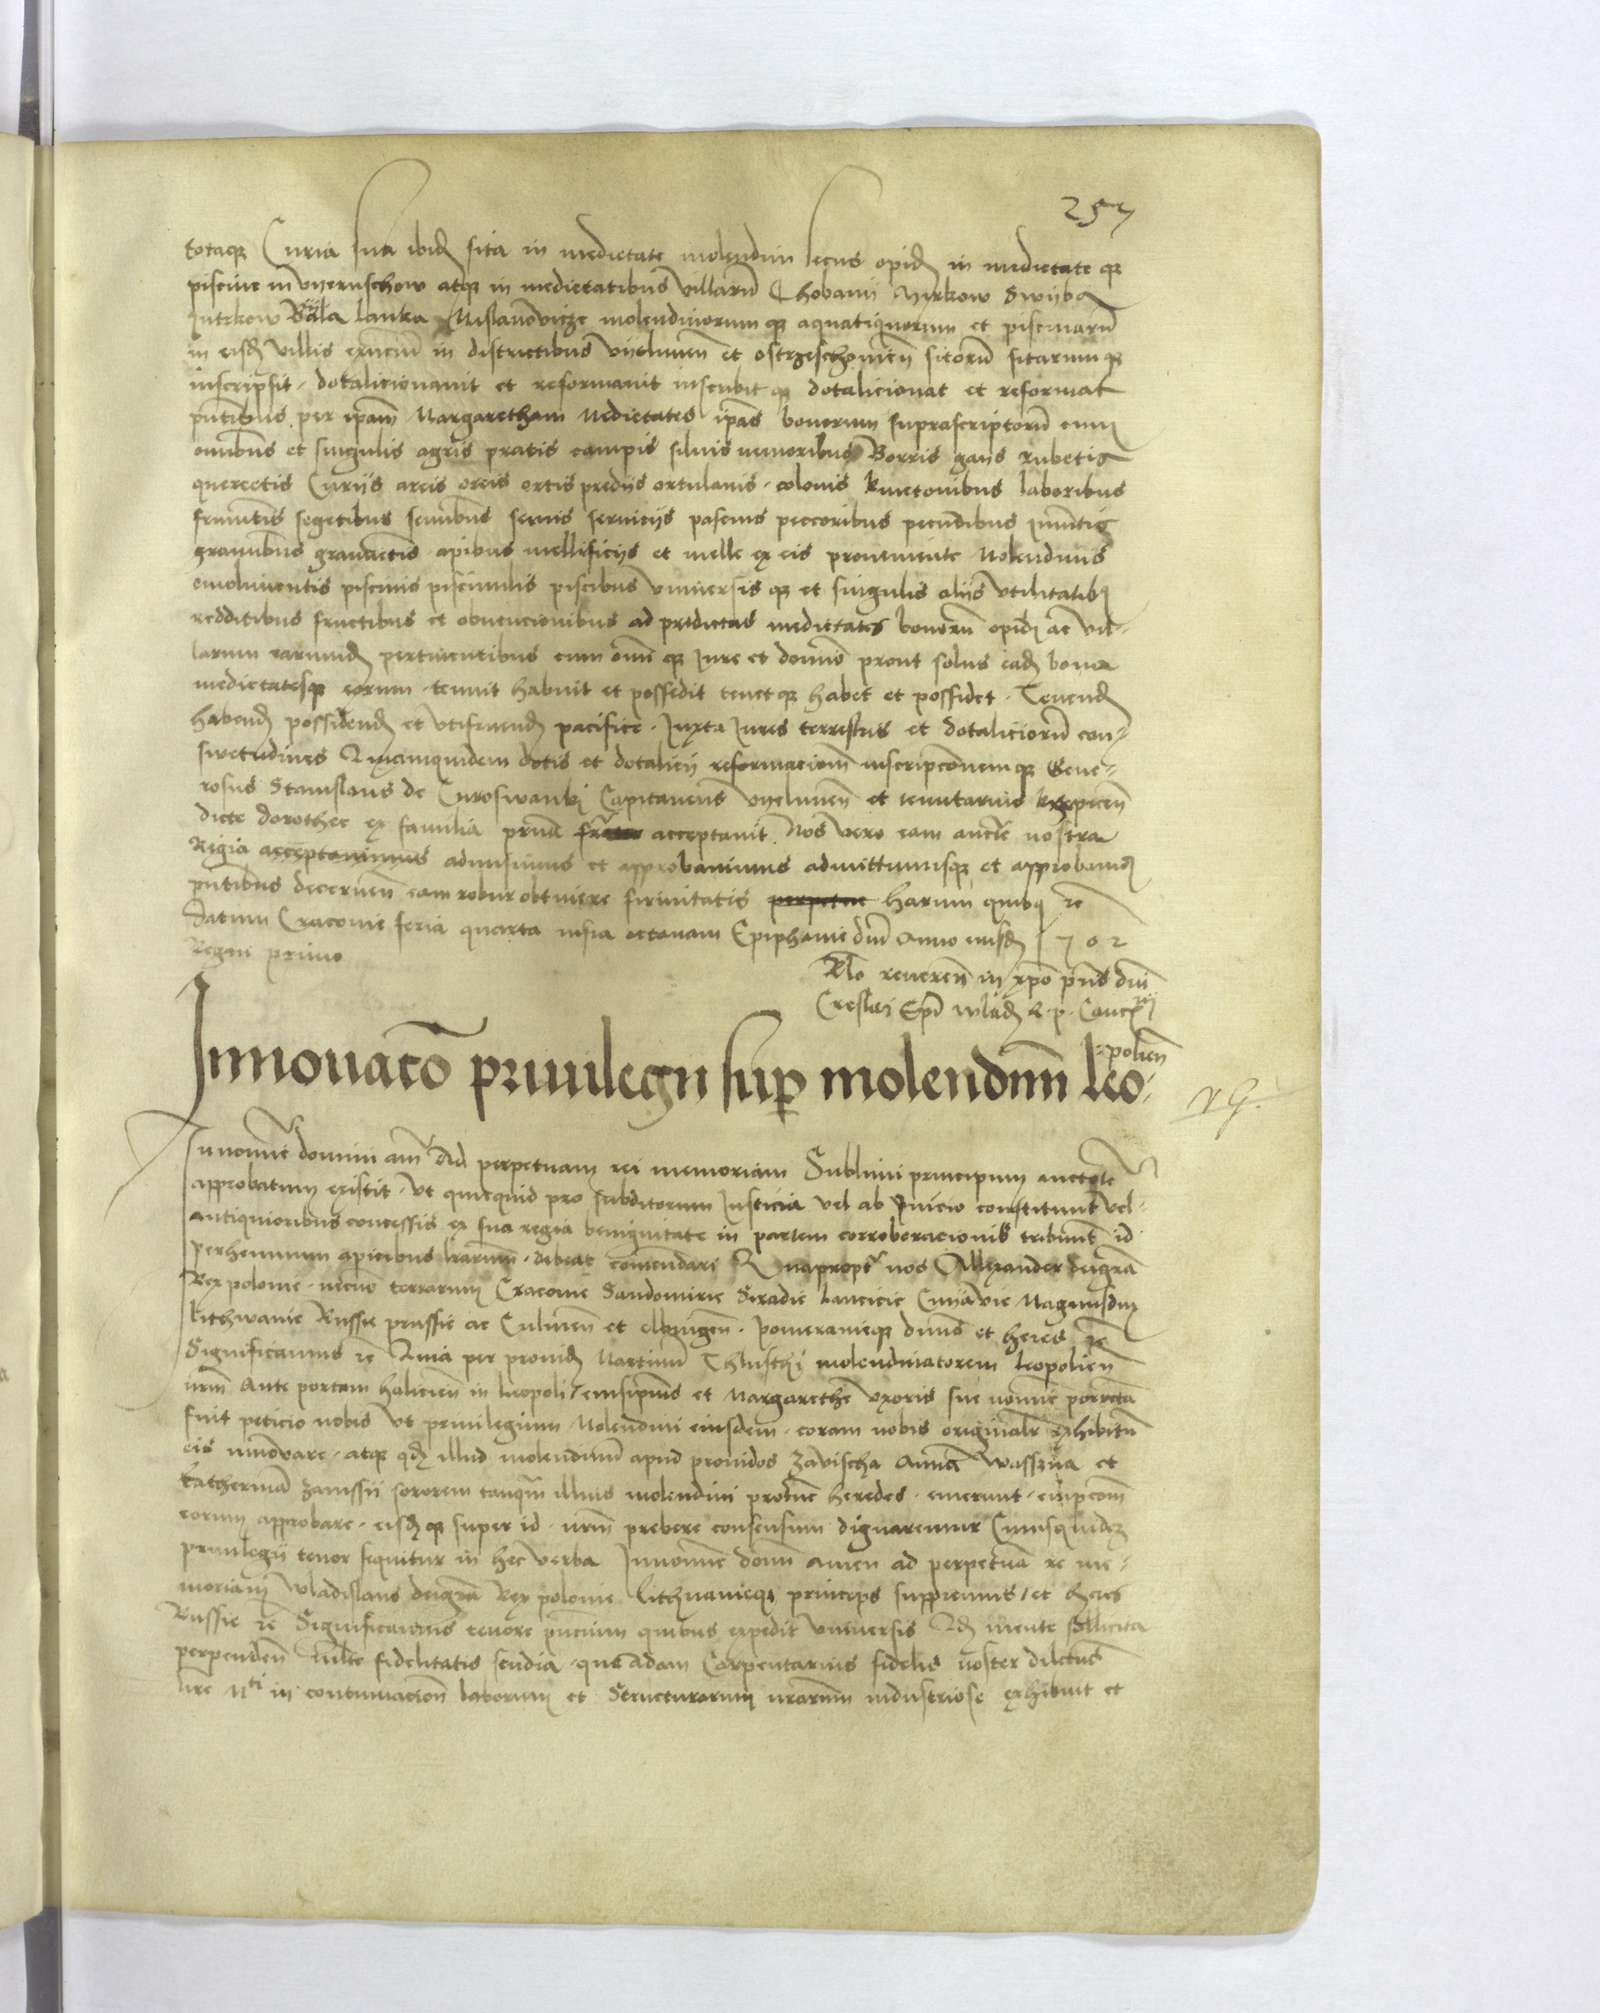 257
totaq Curia sua ibid sita in medietate molendini secus opid in medietate q
piscine in vyernschow atq in medietatibus villarum Chobanij Myrkow Swyba
Jutrkow Byala lanka Mislanowicze molendinorum q aquatiquorum et piscinarum
in eisd villis existen in districtibus vyelunen et ostrzeschowien sitorum sitarum q
inscripsit dotalicionavit et reformavit inscribit q dotalicionat et reformat
pntibus per ipam Margaretham Medietates ipas bonorum suprascriptorum cum
omnibus et singulis agris pratis campis silvis nemoribus Borris gaijs rubetis
quercetis Curijs areis orcis ortis predijs ortulanis colonis kmetonibus laboribus
frumentis segetibus seminibus servis servicijs pascuis peccoribus pecudibus
apibus mellificijs et melle ex eis proveniente Molendinis
emolimentis piscinis pisciculis piscibus vniversis q et singulis alijs vtilitatibq
redditibus fructibus et obvencionibus ad predictas medietates bonorum opid ac vil-
larum earumd pertinentibus cum omni q Jure et dominio prout solus ead bona
medietatesq eorum tenuit habuit et possedit tenet q habet et possidet Tenend
habend possidend et vtifruend pacifice Juxta Juris terrestris et dotaliciorum con-
swetudines Quamquidem dotis et dotalicij reformacionem inscripcionemq Gene-
rosus Stanislaus de Curoswanki Capitaneus vyelunen et tenutarius krzepicen
dicte dorothee ex familia acceptavit Nos vero eam aucte nostra
Regia acceptavimus admisimus et approbavimus admittimusq et approbamq
pntibus decernen eam robur obtinere firmitatis perpetue harum quibq rc
Datum Cracovie feria quarta infra octavam Epiphanie dni Anno eiusd 1 5 0 2
Regni primo
Rlo reveren in xpo pris dni
Creslai Epi wlad R p Cancrij
Innovatō privilegij sup molendinū leo-
-polien
In nomine domini amen Ad perpetuam rei memoriam Sublimi principum auctote
approbatum existit vt quicquid pro subditorum Justicia vel ab Inicio constitunt vel
antiquioribus concessis ex sua regia benignitate in partem corroboracionis tribunt id
perhennium apicibus lrarum debeat comendari Quapropt nos Allexander deigra
Rex polonie necno terrarum Cracovie Sandomirie Siradie lancicie Cuiavie Magnusdux
lithwanie Russie prussie ac Culmen et elbingen pomeranieq dnus et heres rc
Significamus rc Quia per provid Martinum Thlusthi molendinatorem leopolien
nrm Ante portam halicien in leopoli eiusipius et Margarethe vxoris sue nomine porrecta
fuit peticio nobis vt privilegium Molendini eiusdem coram nobis originalr exhibitum
eis innovare atq qd illud molendinum apud providos zavischa Annam Wassyna et
katherinam zanissij sororem tanqm illius molendini protunc heredes emerunt empcom
eorum approbare eisd q super id nrm prebere consensum dignaremur Cuiusquidem
privilegij tenor sequitur in hec verba In nomine domi amen ad perpetuam re me-
moriam Wladislaus deigra Rex polonie lithvanieq princeps suppremus et heres
Russie rc Significamus tenore pncium quibus expedit vniversis Qd mente sollicita
perpenden multe fidelitatis studia que Adam Carpentarius fidelis noster dilectus
nre Mti in continuacione laborum et Structurarum nrarum industriose exhibuit et